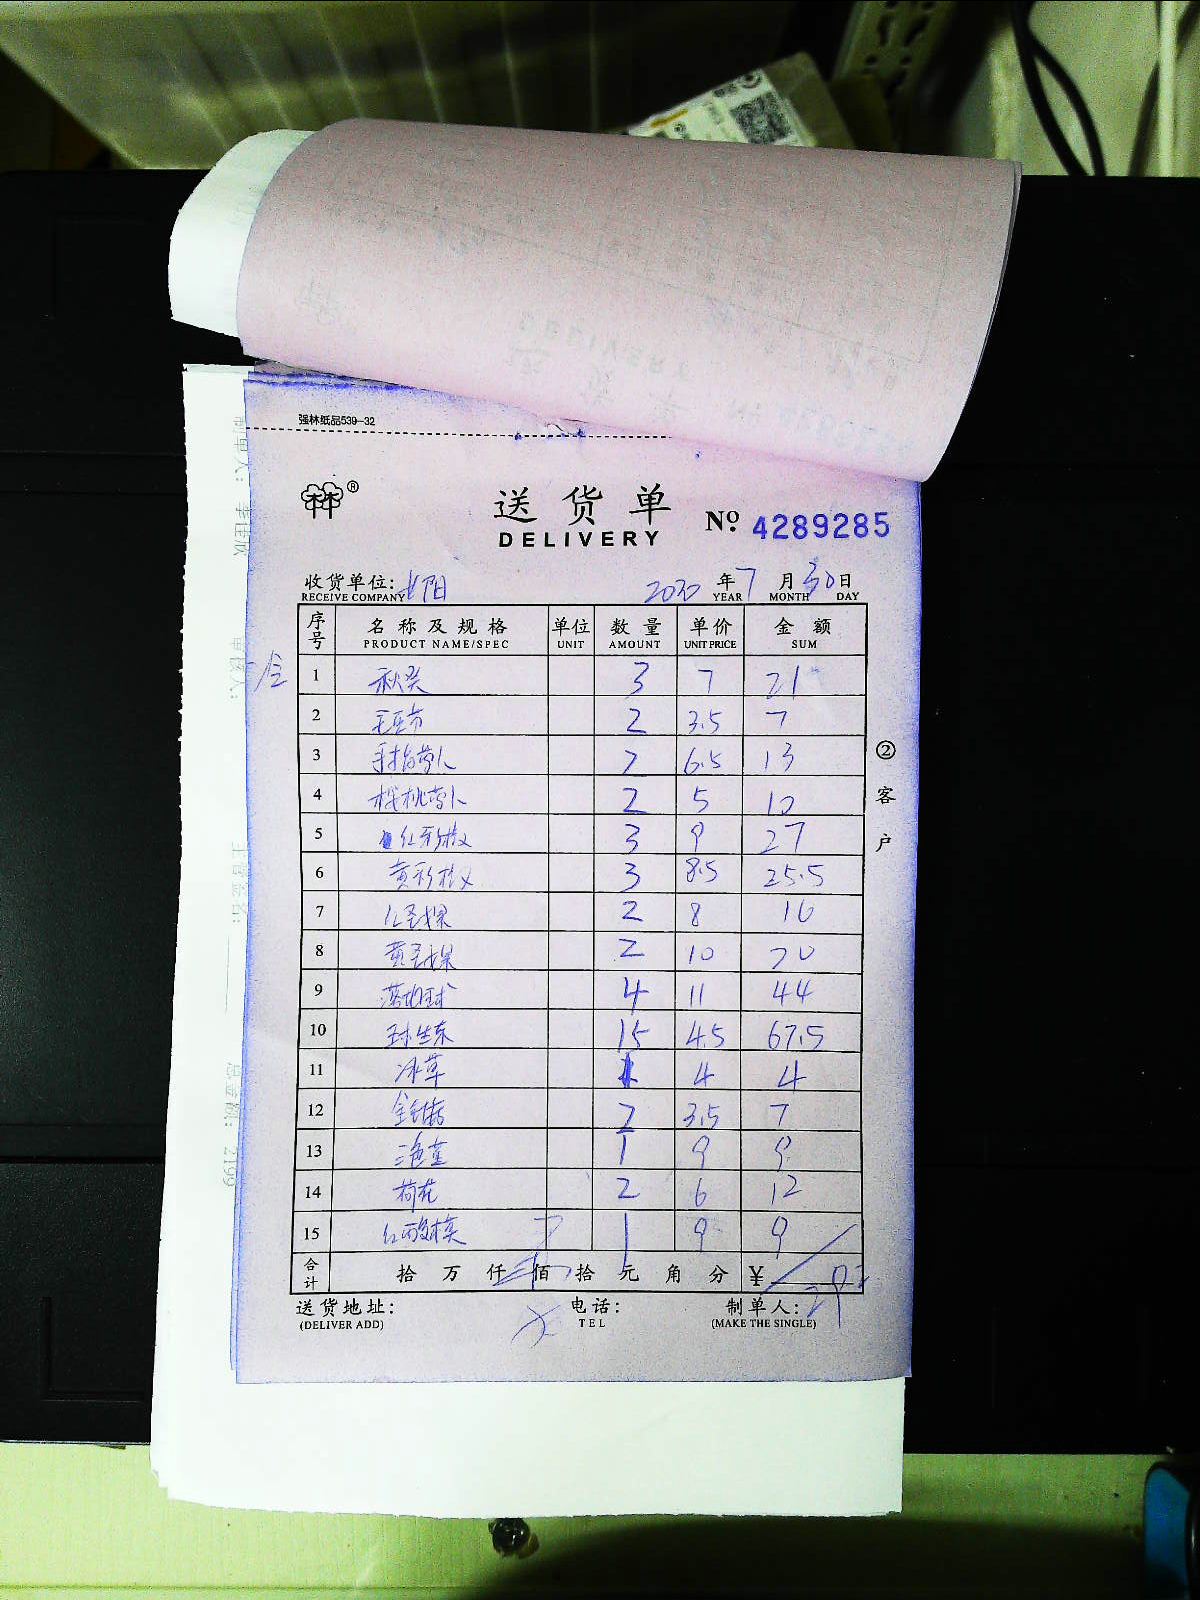 强林纸品539-32
林®
送货单 No. 4289285
DELIVERY
收货单位: 2020 年 7 月 30 日
RECEIVE COMPANY YEAR MONTH DAY
序号 名称及规格 单位 数量 单价 金额
PRODUCT NAME/SPEC UNIT AMOUNT UNIT PRICE SUM
1 秋葵 3 7 21
2 毛豆节 2 3.5 7
3 手指萝卜 2 6.5 13
4 樱桃萝卜 2 5 10
5 红彩椒 3 9 27
6 黄彩椒 3 8.5 25.5
7 红圣女果 2 8 16
8 黄圣女果 2 10 20
9 4 11 44
10 球生菜 15 4.5 67.5
11 冰草 1 4 4
12 金针菇 2 3.5 7
13 1 9 9
14 荷花 2 6 12
15 红酸模 1 9 9
合计 拾 万 仟 佰 拾 元 角 分 ¥ 292
送货地址: 电话: 制单人:
(DELIVER ADD) TEL (MAKE THE SINGLE)
②客户